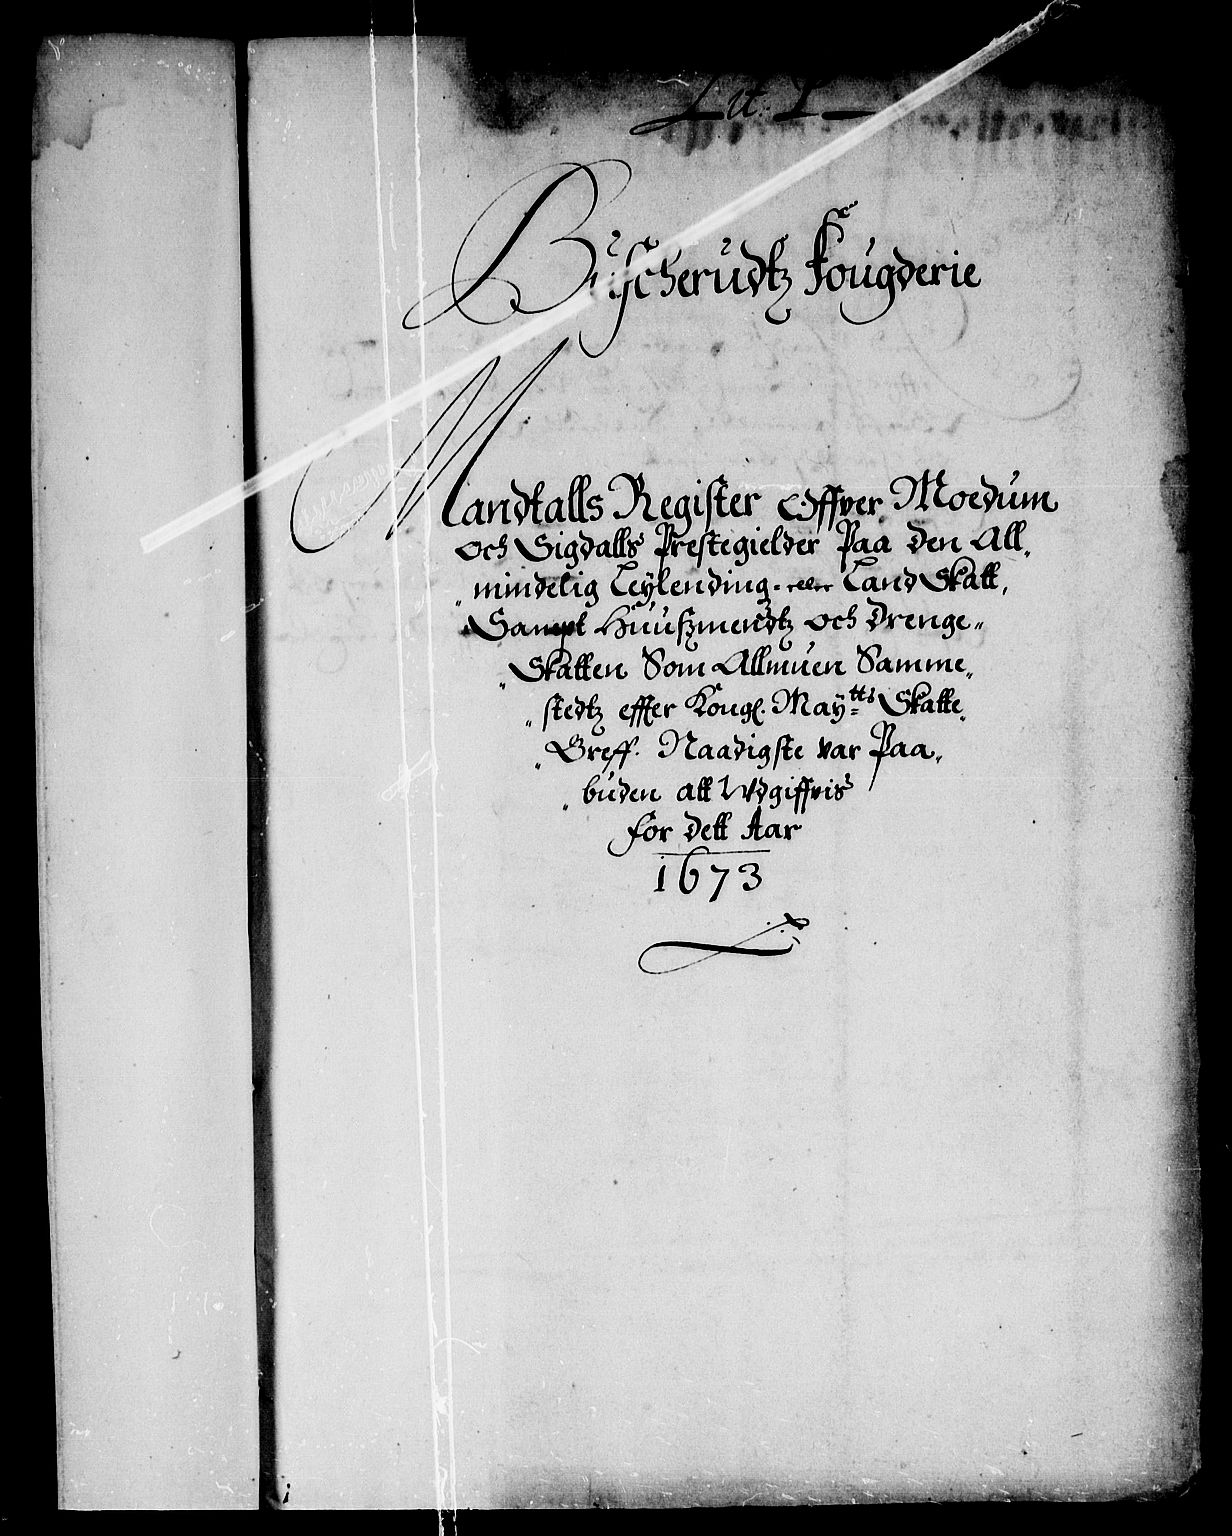 Lit: L
Buscherudtz Fougderie
Mandtalls Register Offver Moedum
och Sigdalls Prestegielder Paa den All„
„mindelig Leylending- eller Land Skatt,
Sampt Huuszmendtz och Drenge„
„Skatten Som Allmuen Samme„
„stedtz effter Kongl. May:tts Skatte„
„Breff. Naadigste var Paa„
„buden att Udgiffvis
for dett Aar
1673